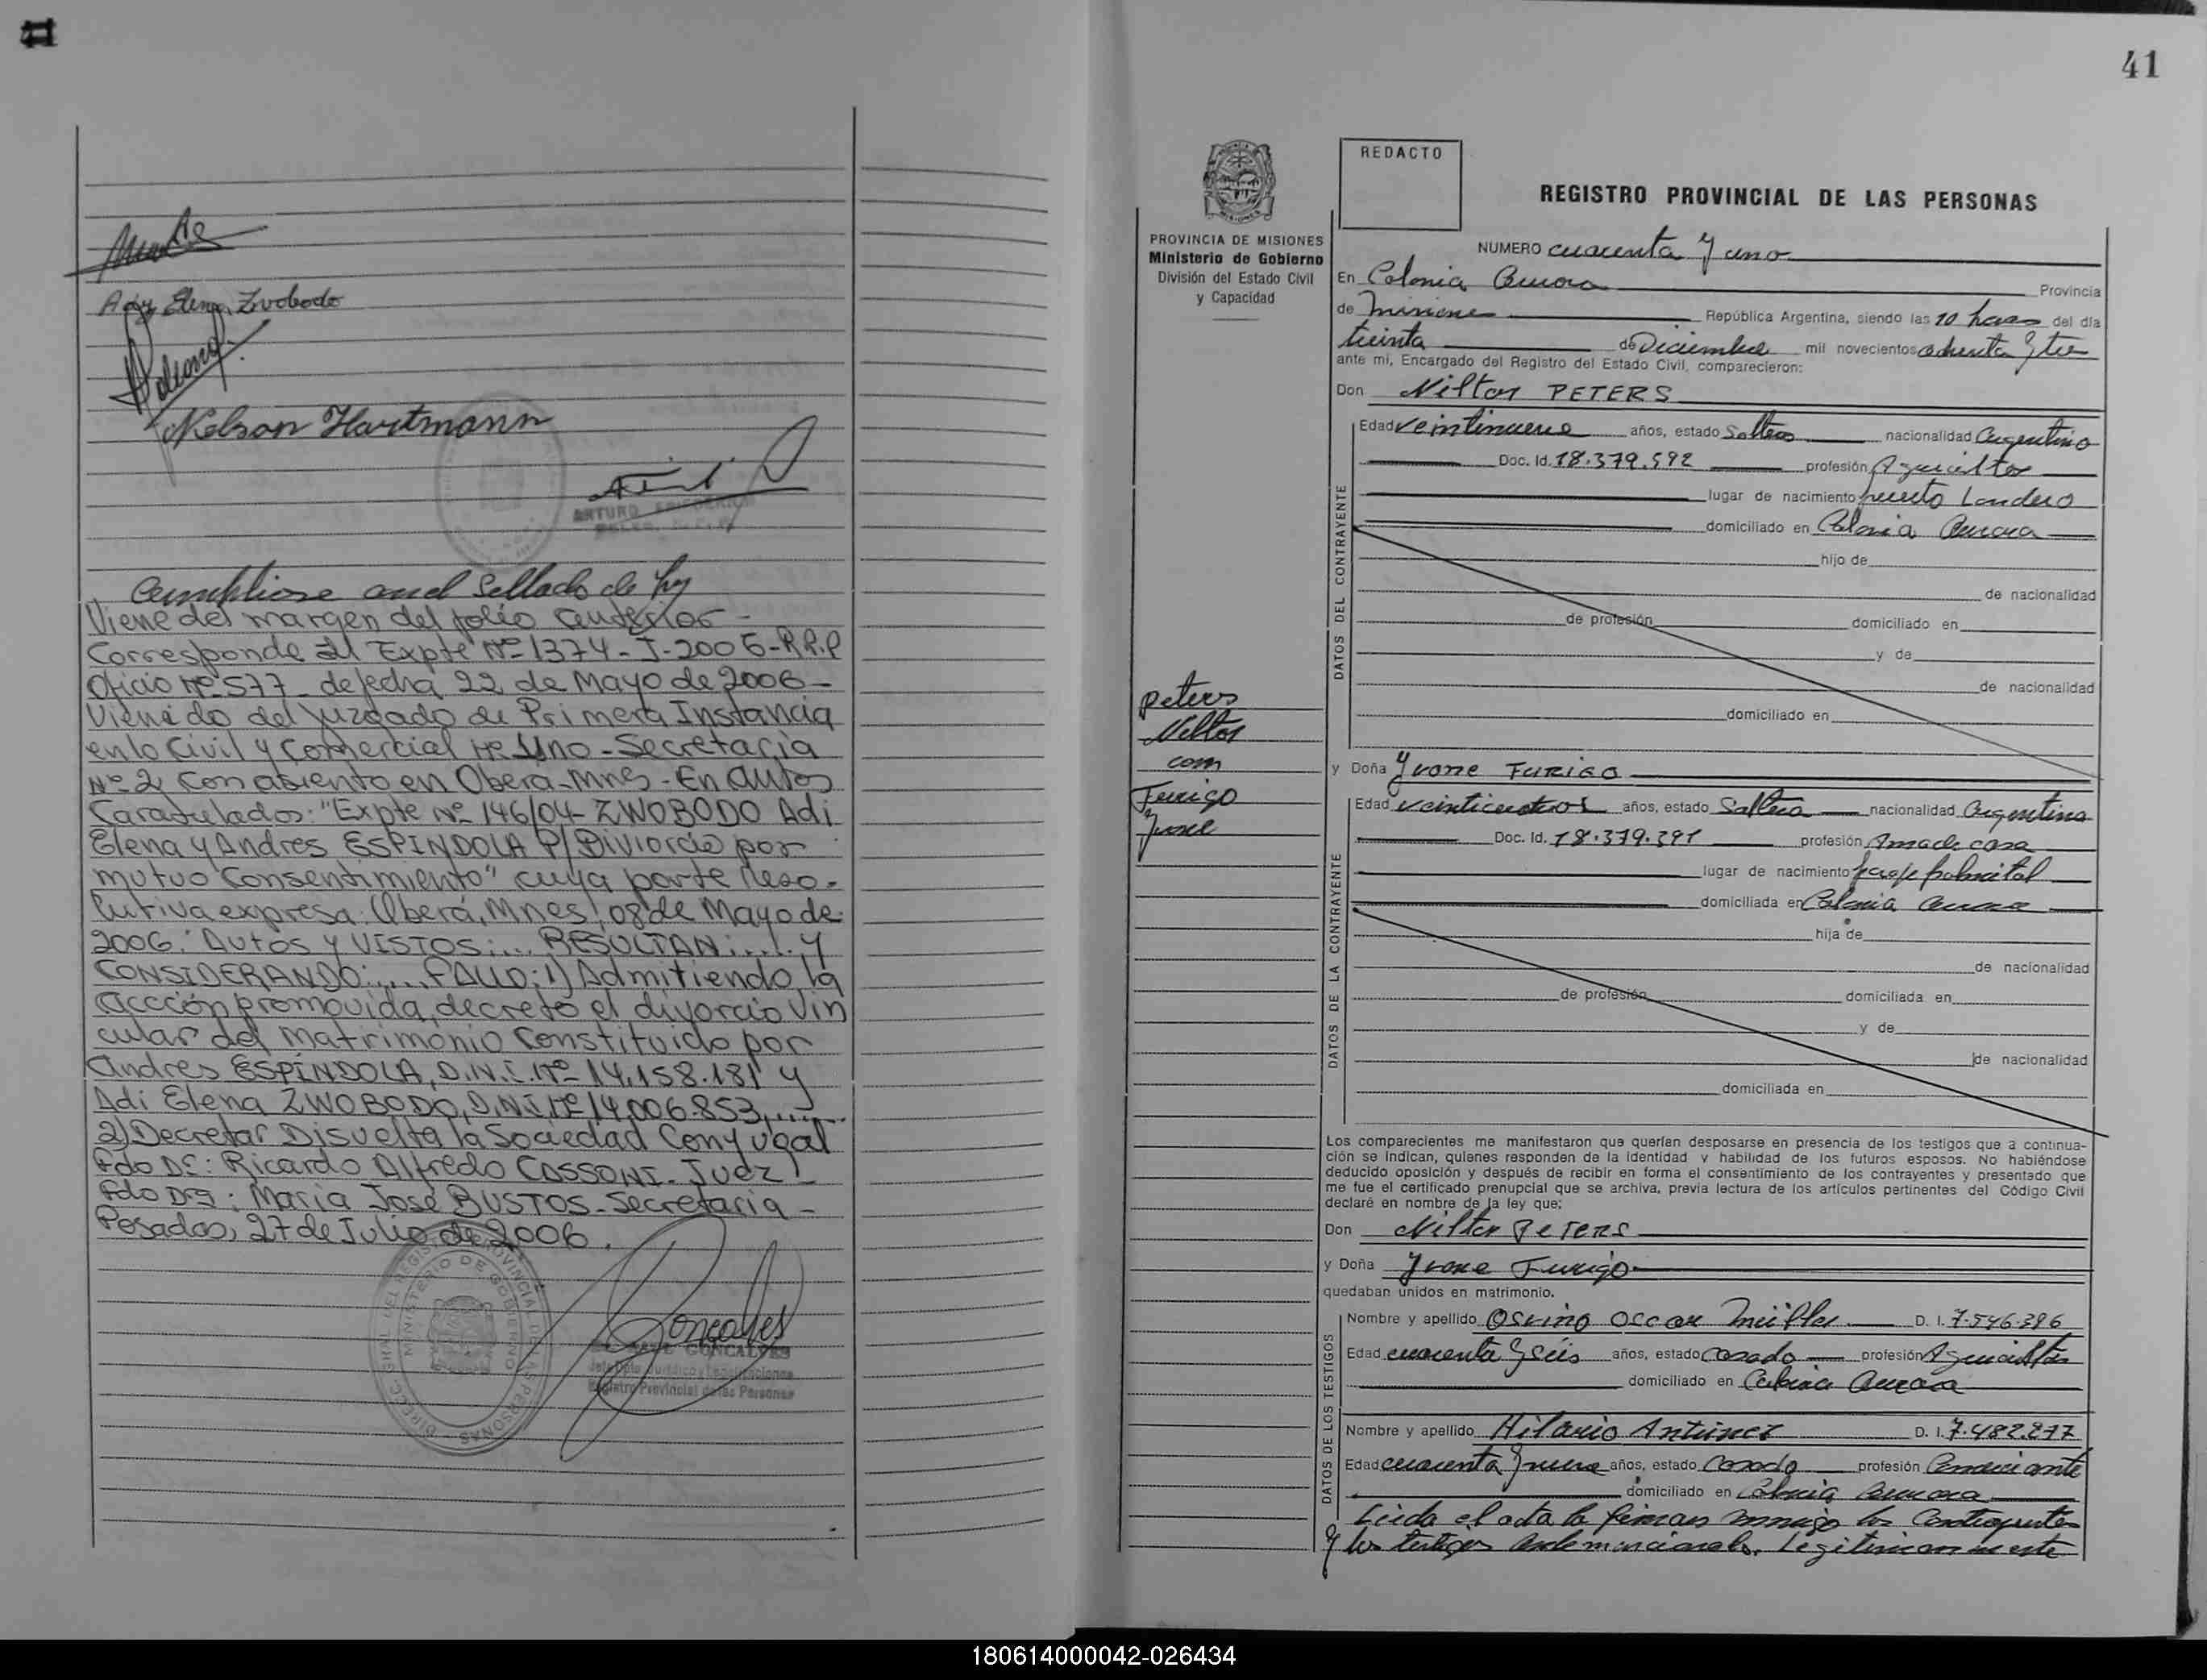 41
Ady Elena Zwobodo
Nelson Hartmann
ARTURO
Cumpliose con el Sellado de ley
Viene del margen del folio anterior -
Corresponde al Expte Nº 1374 - J - 2006 - R.P.P
Oficio Nº 577 - de fecha 22 de Mayo de 2006 -
Viene do del Juzgado de Primera Instancia
en lo Civil y Comercial Nº Uno - Secretaria
Nº 2, Con asiento en Obera - Mnes - En autos
Caratulados: "Expte Nº 146/04 - ZWOBODO Adi
Elena y Andres ESPINDOLA P/ Diviorcio por
mutuo Consentimiento" cuya parte Reso-
lutiva expresa: Oberá, Mnes, 08 de Mayo de
2006. Autos y VISTOS:... RESULTAN:.... y
CONSIDERANDO:.... FALLO: 1) Admitiendo la
acción promovida, decreto el divorcio Vin
cular del matrimonio Constituido por
Andres ESPÍNDOLA, D.N.I. Nº 14.158.181 y
Adi Elena ZWOBODO, D.N.I. Nº 14.006.853,....
2) Decretar Disuelta la Sociedad Conyugal
Fdo Dr: Ricardo Alfredo CASSONI - Juez -
Fdo Dra: Maria José BUSTOS - Secretaria -
Posadas, 27 de Julio de 2006.
Goncalves
GONCALVES
Registro Provincial de las Personas
41
REDACTO
REGISTRO PROVINCIAL DE LAS PERSONAS
PROVINCIA DE MISIONES
Ministerio de Gobierno
División del Estado Civil
y Capacidad
NUMERO cuarenta y uno
En Colonia Aurora Provincia
de Misiones República Argentina, siendo las 10 horas del día
treinta de Diciembre mil novecientos ochenta y tres
ante mi, Encargado del Registro del Estado Civil, comparecieron:
Don Nilton PETERS
Edad veintinueve años, estado Soltero nacionalidad Argentino
Doc. Id. 18.379.592 profesión Agricultor
lugar de nacimiento puerto Londero
domiciliado en Colonia Aurora
hijo de
de nacionalidad
de profesión domiciliado en
y de
de nacionalidad
domiciliado en
DATOS DEL CONTRAYENTE
Peters
Nilton
com
Furigo
Yvone
y Doña Yvone FURIGO
Edad veinticuatros años, estado Soltera nacionalidad Argentina
Doc. Id. 18.379.591 profesión Ama de casa
lugar de nacimiento paraje palmital
domiciliada en Colonia Aurora
hija de
de nacionalidad
de profesión domiciliada en
y de
de nacionalidad
domiciliada en
DATOS DE LA CONTRAYENTE
Los comparecientes me manifestaron que querían desposarse en presencia de los testigos que a continua-
ción se indican, quienes responden de la identidad y habilidad de los futuros esposos. No habiéndose
deducido oposición y después de recibir en forma el consentimiento de los contrayentes y presentado que
me fue el certificado prenupcial que se archiva, previa lectura de los artículos pertinentes del Código Civil
declaré en nombre de la ley que:
Don Nilton PETERS
y Doña Yvone Furigo
quedaban unidos en matrimonio.
Nombre y apellido Osvino Oscar Müller D. I. 7.546.396
Edad cuarenta y seis años, estado casado profesión Agricultor
domiciliado en Colonia Aurora
Nombre y apellido Hilario Antunez D. I. 7.482.277
Edad cuarenta y nueve años, estado casado profesión Comerciante
domiciliado en Colonia Aurora
DATOS DE LOS TESTIGOS
Leida el acta la firman conmigo los Contrayentes
y los testigos ande mencionados. Legitiman en este
180614000042-026434